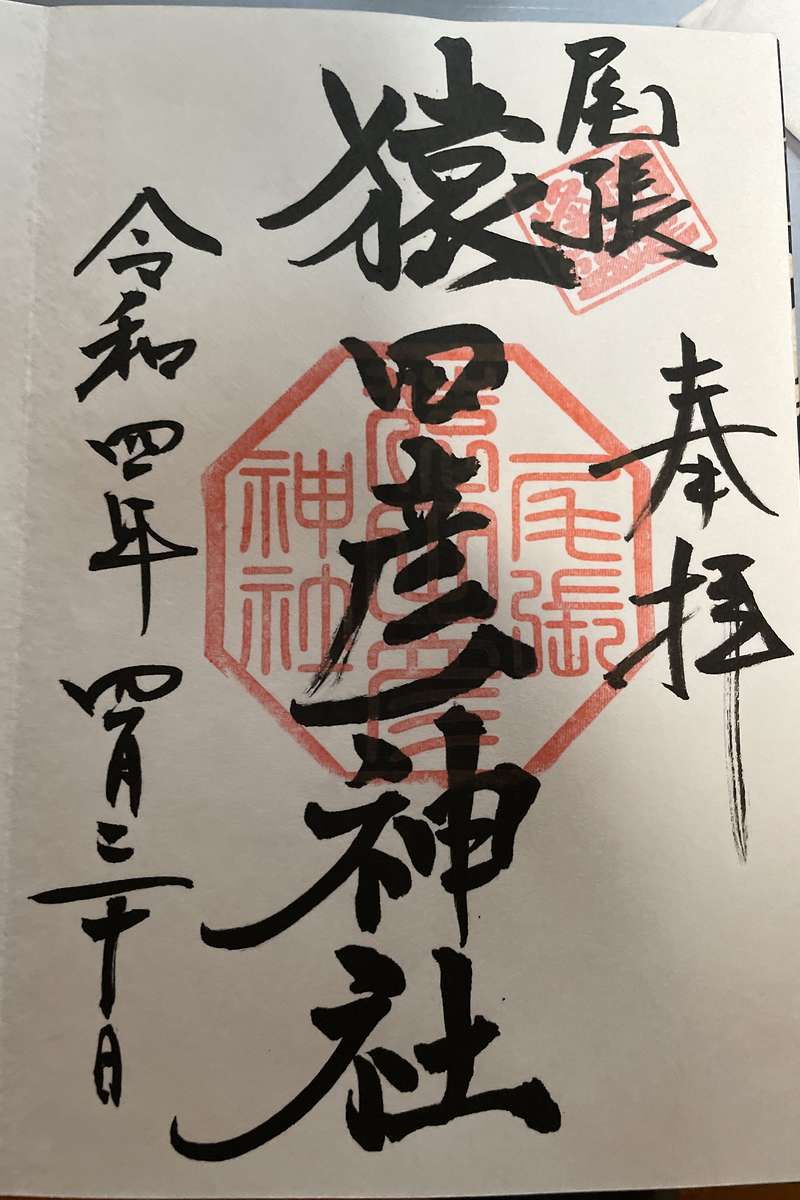 奉拝
尾張
猿田彦神社
令和四年四月三十日
尾張
猿田彦
神社